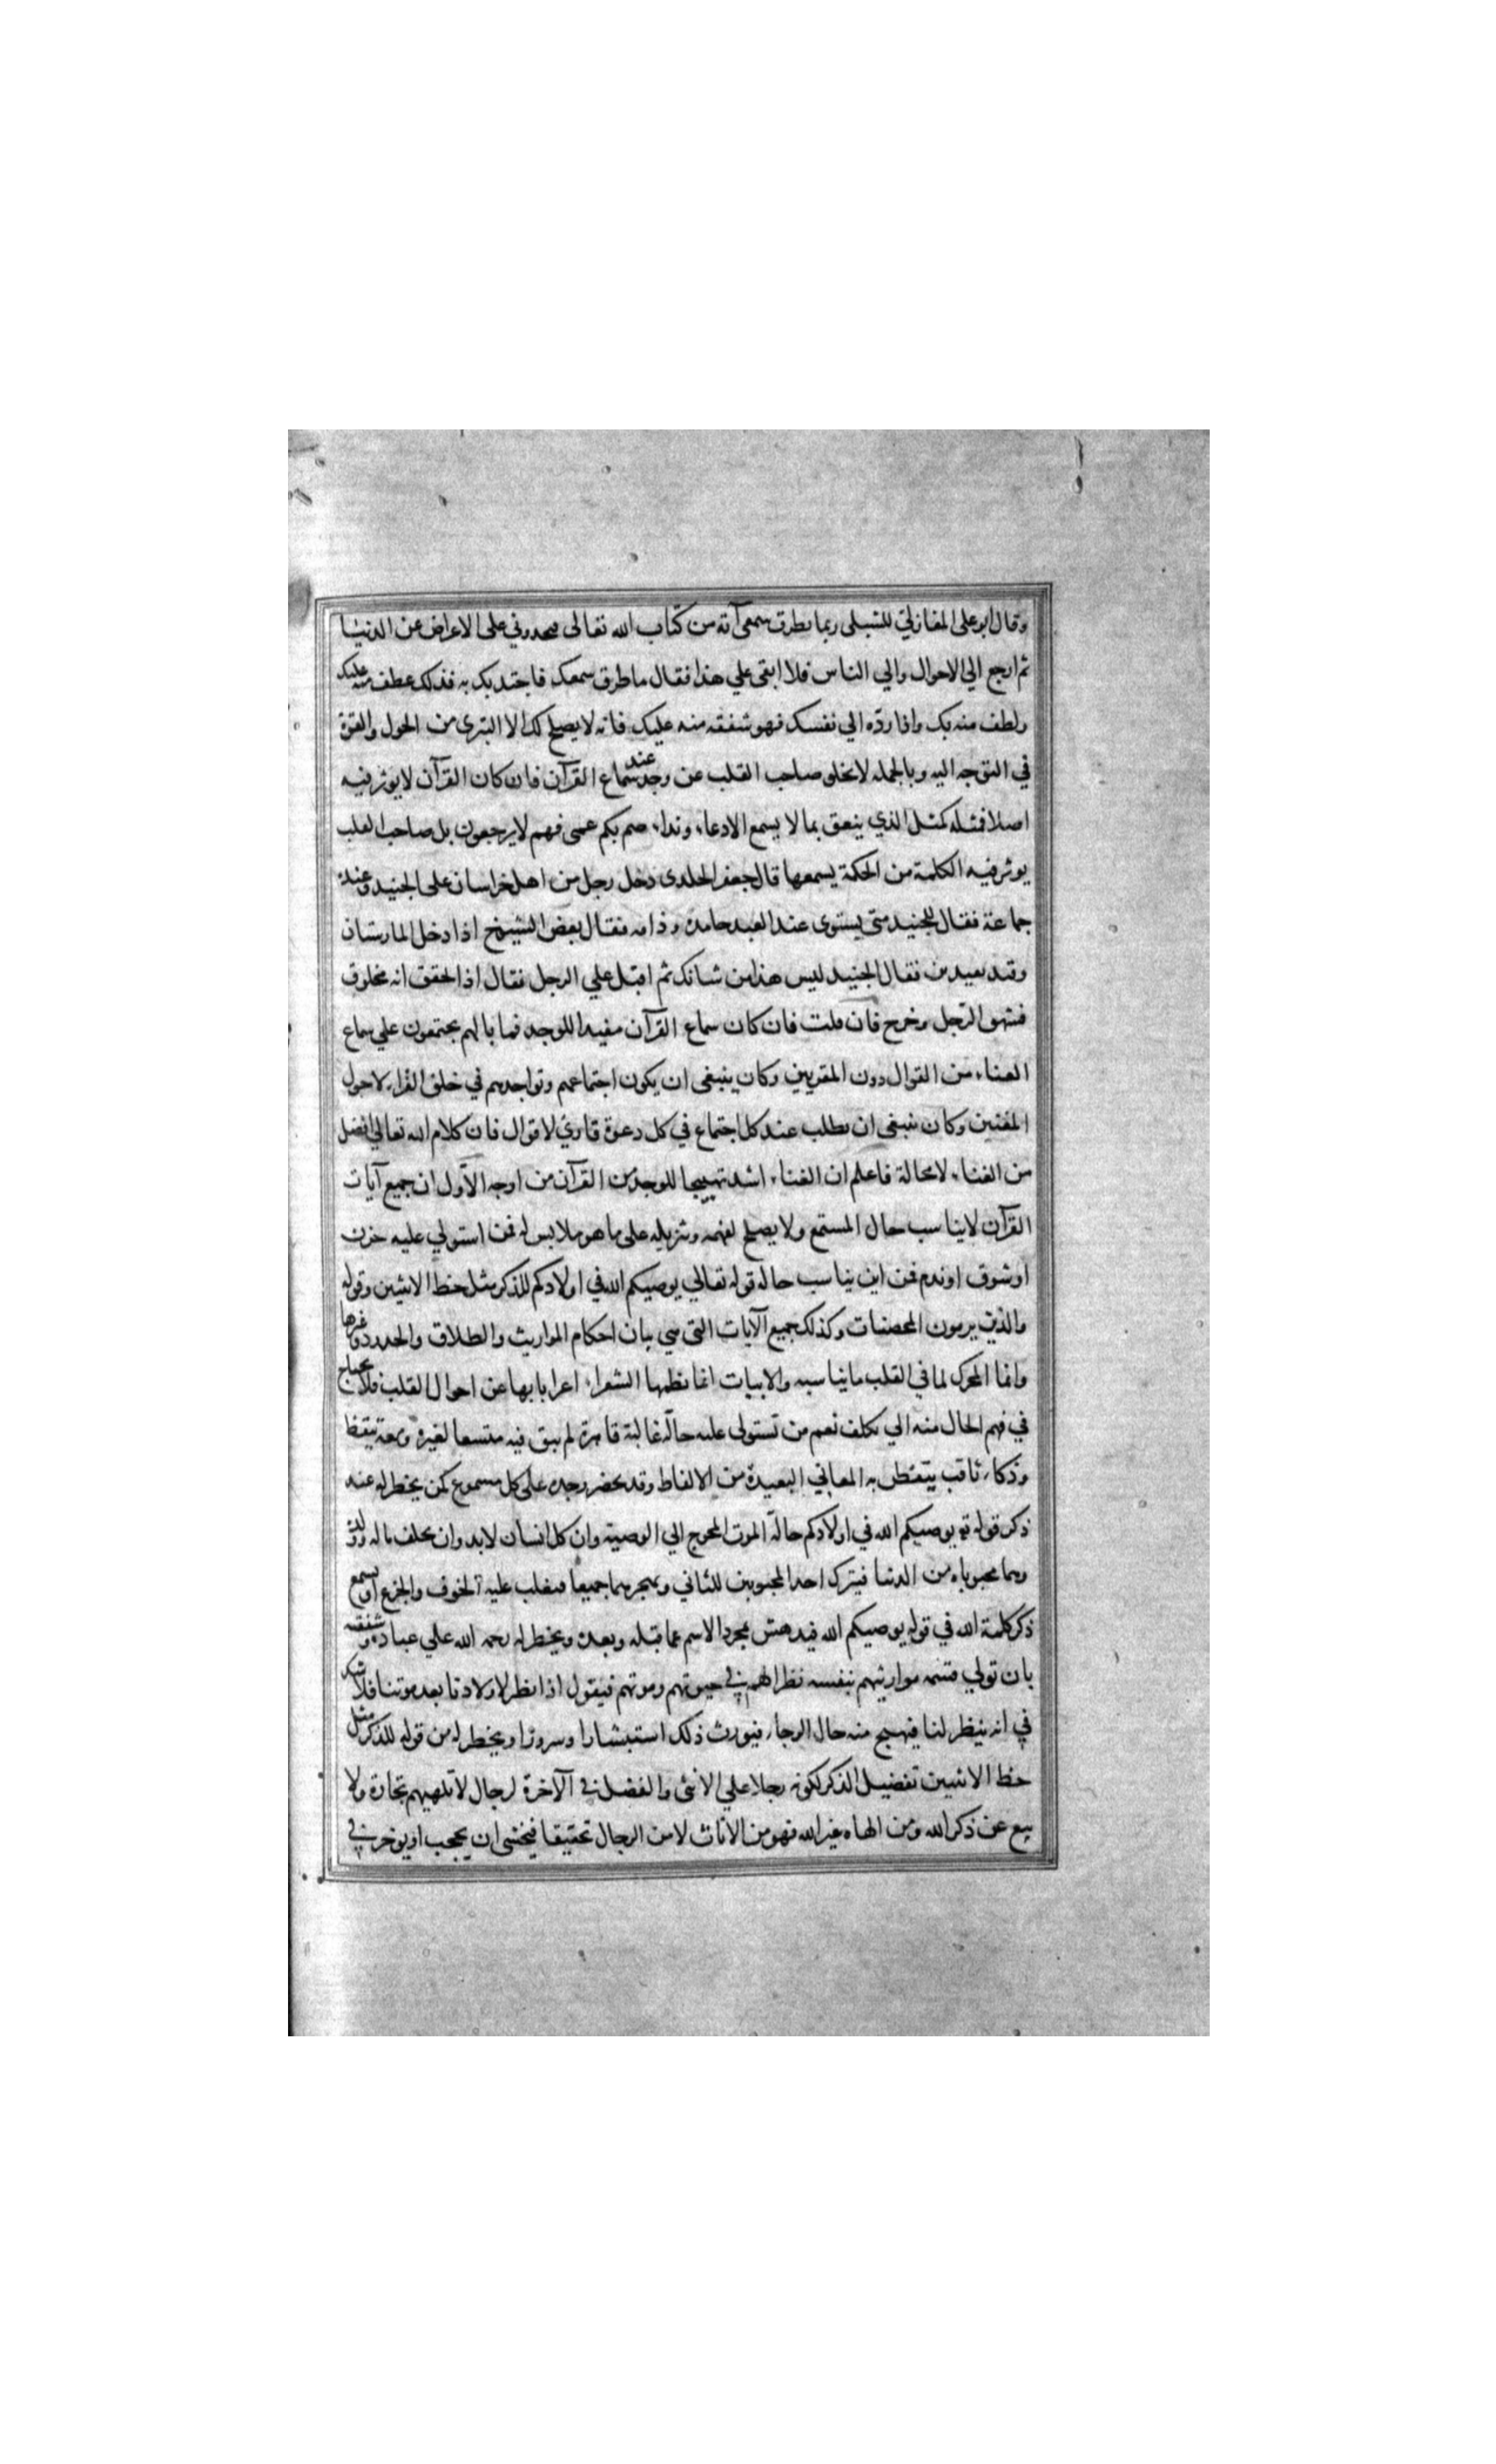 وقال ابو علي المغازلي للشبلي ربما يطرق سمعي آية من كتاب الله تعالى فتحدوني على الاعراض عن الدنيا
ثم ارجع الي الاحوال والي الناس فلا ابقى علي هذا فقال ما طرق سمعك فاجتذبك به فذلك عطف منه عليك
ولطف منه بك واذا ردّه الي نفسك فهو شفقة منه عليك فانه لا يصلح لك الا التبري من الحول والقوة
في التوجه اليه وبالجملة لا يخلو صاحب القلب عن وجد عند سماع القرآن فان كان القرآن لا يوثر فيه
اصلا فمثله كمثل الذي ينعق بما لا يسمع الا دعاء ونداء صم بكم عمي فهم لا يرجعون بل صاحب القلب
يوثر فيه الكلمة من الحكمة يسمعها قال جعفر الخلدي دخل رجل من اهل خراسان على الجنيد وعنده
جماعة فقال للجنيد متى يستوى عند العبد حامده وذامه فقال بعض الشيوخ اذا دخل المارستان
وقيد بقيدين فقال الجنيد ليس هذا من شانك ثم اقبل علي الرجل فقال اذا تحقق انه مخلوق
فشهق الرجل وخرج فان قلت فان كان سماع القرآن مفيدا للوجد فما بالهم يجتمعون علي سماع
الغناء من القوال دون المقريين وكان ينبغي ان يكون اجتماعهم وتواجدهم في حلق القراء لا حول
المغنين وكان ينبغي ان يطلب عند كل اجتماع في كل دعوة قاري لا قوال فان كلام الله تعالي افضل
من الغناء لا محالة فاعلم ان الغناء اشد تهييجا للوجد من القرآن من اوجه الاول ان جميع آيات
القرآن لا يناسب حال المستمع ولا يصلح لفهمه وتنزيله على ما هو ملابس له فمن استولي عليه حزن
او شوق او ندم فمن اين يناسب حاله قوله تعالي يوصيكم الله في اولادكم للذكر مثل حظ الانثيين وقوله
والذين يرمون المحصنات وكذلك جميع الآيات التي هي بيان احكام المواريث والطلاق والحدود وغيرها
وانما المحرك لما في القلب ما يناسبه والابيات انما نظمها الشعراء اعرابا بها عن احوال القلب فلا يحتاج
في فهم الحال منه الي تكلف نعم من تستولي عليه حالة غالبة قاهرة لم يبق فيه متسعا لغيره ومعه تيقظ
وذكاء ثاقب يتفطن به المعاني البعيدة من الالفاظ وقد يحضر وجده على كل مسموع كمن يخطر له عند
ذكر قوله تع يوصيكم الله في اولادكم حالة الموت المحوج الي الوصية وان كل انسان لا بد وان يخلف ماله وولده
وهما محبوباه من الدنيا فيترك احد المحبوبين للثاني ويهجرهما جميعا فيغلب عليه الخوف والجزع او يسمع
ذكر كلمة الله في قوله يوصيكم الله فيدهش بمجرد الاسم عما قبله وبعده ويخطر له رحمة الله علي عباده وشفقته
بان تولي قسمة مواريثهم بنفسه نظرا لهم في حيوتهم وموتهم فيقول اذا نظر لاولادنا بعد موتنا فلا شك
في انه ينظر لنا فيهيج منه حال الرجاء فيورث ذلك استبشارا وسرورا ويخطر له من قوله للذكر مثل
حظ الانثيين تفضيل الذكر لكونه رجلا علي الانثى والفضل في الآخرة لرجال لا تلهيهم تجارة ولا
بيع عن ذكر الله ومن الهاه غير الله فهو من الاناث لا من الرجال تحقيقا فيخشى ان يحجب او يوخر في